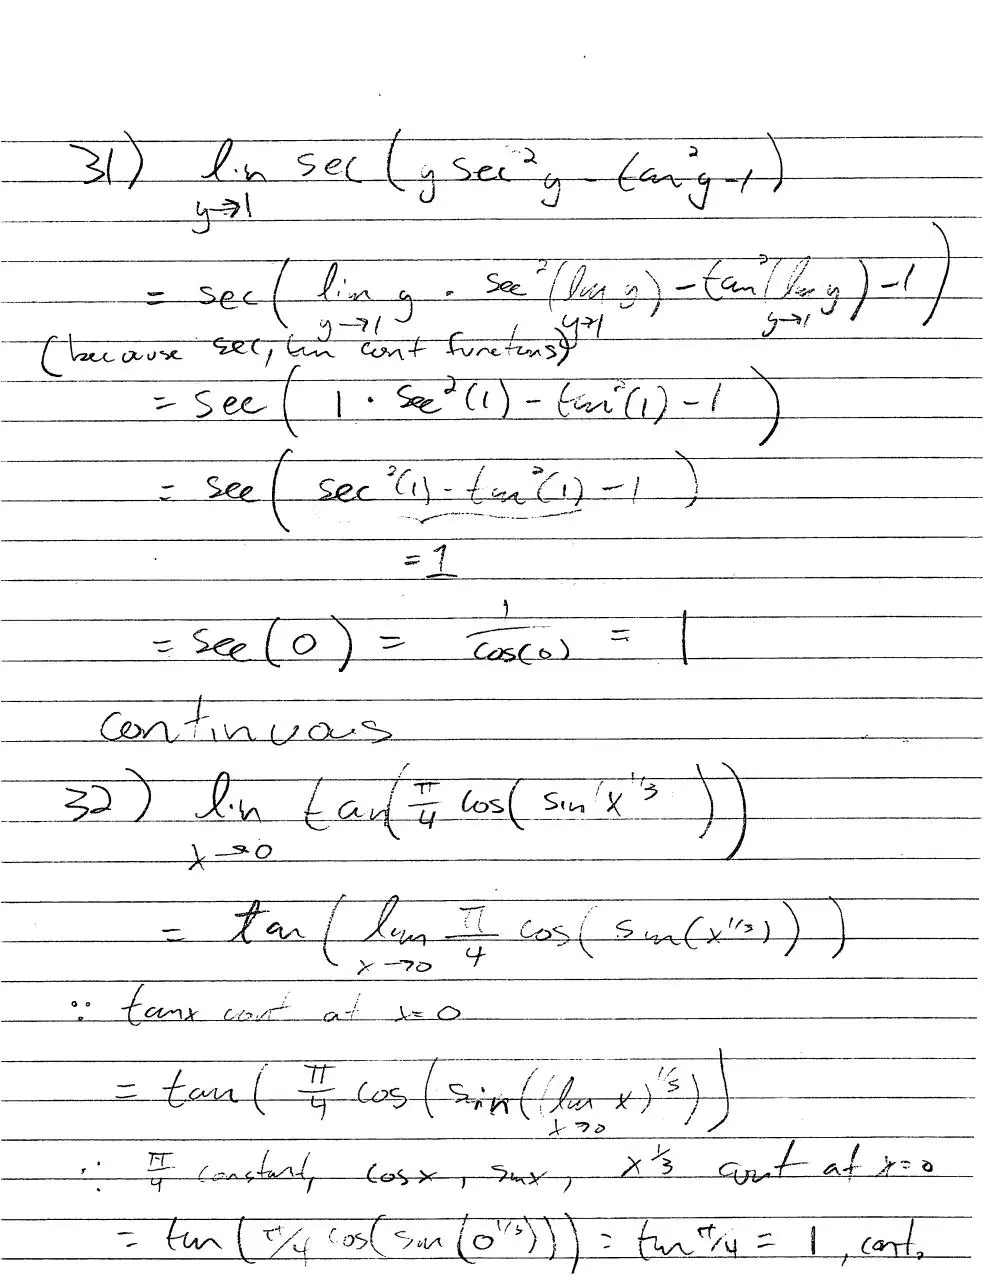 31) lim sec (y sec²y - tan²y - 1)
y→1
= sec( lim y · sec²(lim y) - tan²(lim y) - 1 )
y→1 y→1 y→1
(because sec, tan cont functions)
= sec( 1 · sec²(1) - tan²(1) - 1 )
= sec( sec²(1) - tan²(1) - 1 )
= 1
= sec(0) = 1/cos(0) = 1
continuous
32) lim tan(π/4 cos( sin x^1/3 ))
x→0
= tan( lim π/4 cos( sin(x^1/3) ) )
x→0
∵ tanx cont at x=0
= tan( π/4 cos( sin( (lim x)^1/3 ) ) )
x→0
∵ π/4 constant, cosx, sinx, x^1/3 cont at x=0
= tan(π/4 cos(sin(0^1/3))) = tan π/4 = 1, cont.